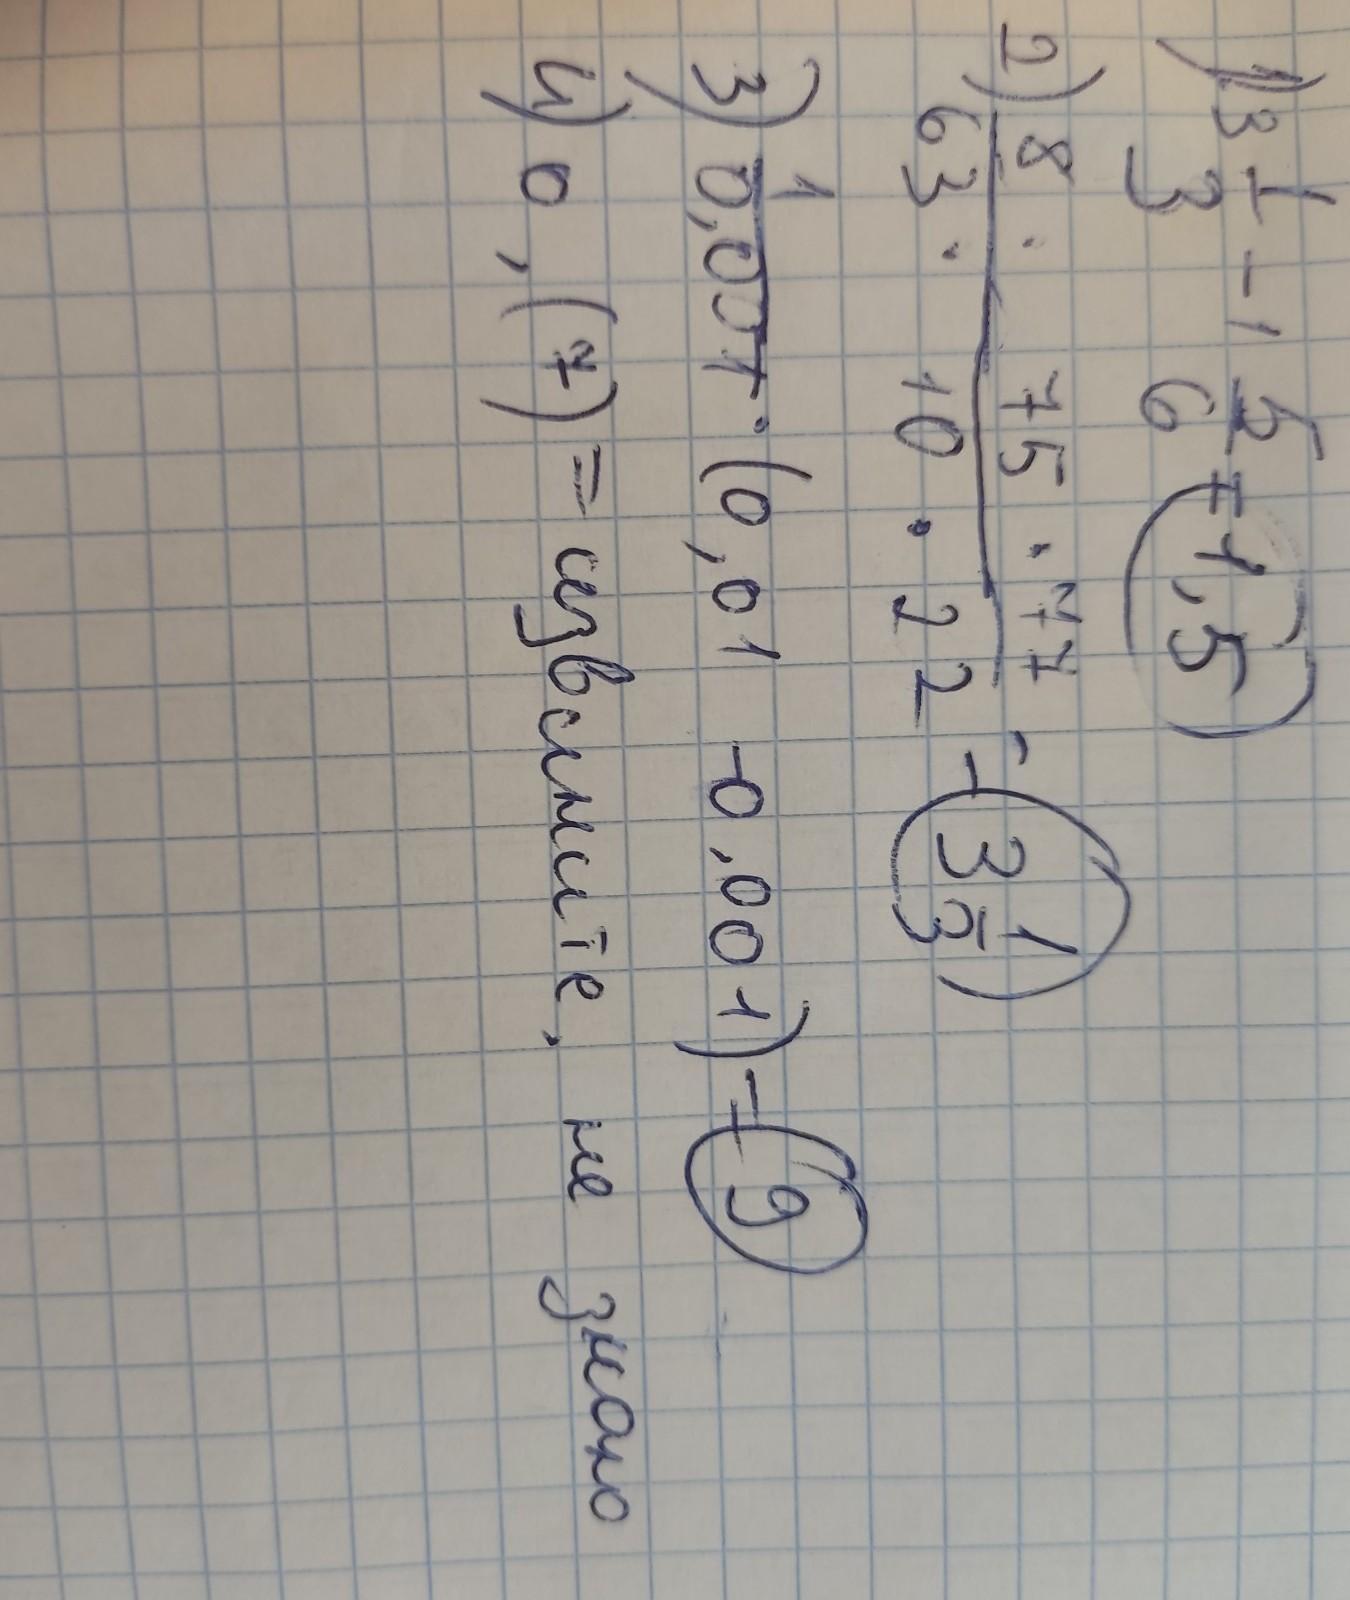 1) 3 1/3 - 1 5/6 = 1,5
2) 8 · 75 · 77 / 63 · 10 · 22 = 3 1/3
3) 1/0,001 · (0,01 - 0,001) = 9
4) 0,(7) = извините, не знаю